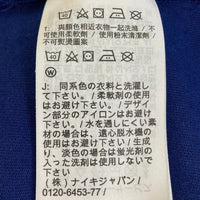 T: 與顏色相近衣物一起洗滌 / 不
可使用柔軟劑 / 不使用漂白劑 /
不可熨燙圖案
40
W
J: 同系色の衣料と洗濯し
て下さい。/ 柔軟剤の使用
はお避け下さい。/ デザイ
ン部分のアイロンはお避け
下さい。/ 水を通しにくい素
材の場合は、遠心脱水機で
の使用はお避け下さい / 生成
り、淡色の場合は蛍光剤の
入った洗剤は使用しないで
下さい /
(株) ナイキジャパン /
0120-6453-77 /